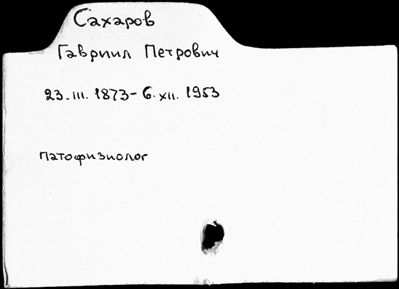 Сахаров
Гавриил Петрович
23.III.1873-6.XII.1953
патофизиолог